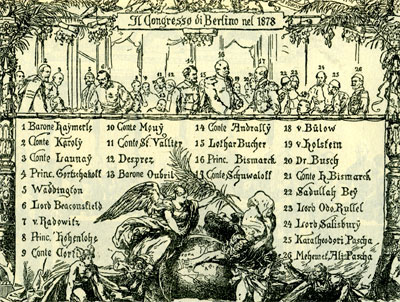 Il Congresso di Berlino nel 1878
1 Barone Haymerle
2 Conte Karoly
3 Conte Launay
4 Princ. Gortschakoff
5 Waddington
6 Lord Beaconsfield
7 v. Radowitz
8 Princ. Hohenlohe
9 Conte Corti
10 Conte Mouy
11 Conte St. Vallier
12 Desprez
13 Barone Oubril
14 Conte Andrassy
15 Lothar Bucher
16 Princ. Bismarck
17 Conte Schuwaloff
18 v. Bülow
19 v. Holstein
20 Dr. Busch
21 Conte H. Bismarck
22 Sadullah Bey
23 Lord Odo Russel
24 Lord Salisbury
25 Karatheodori Pascha
26 Mehemet Ali Pascha